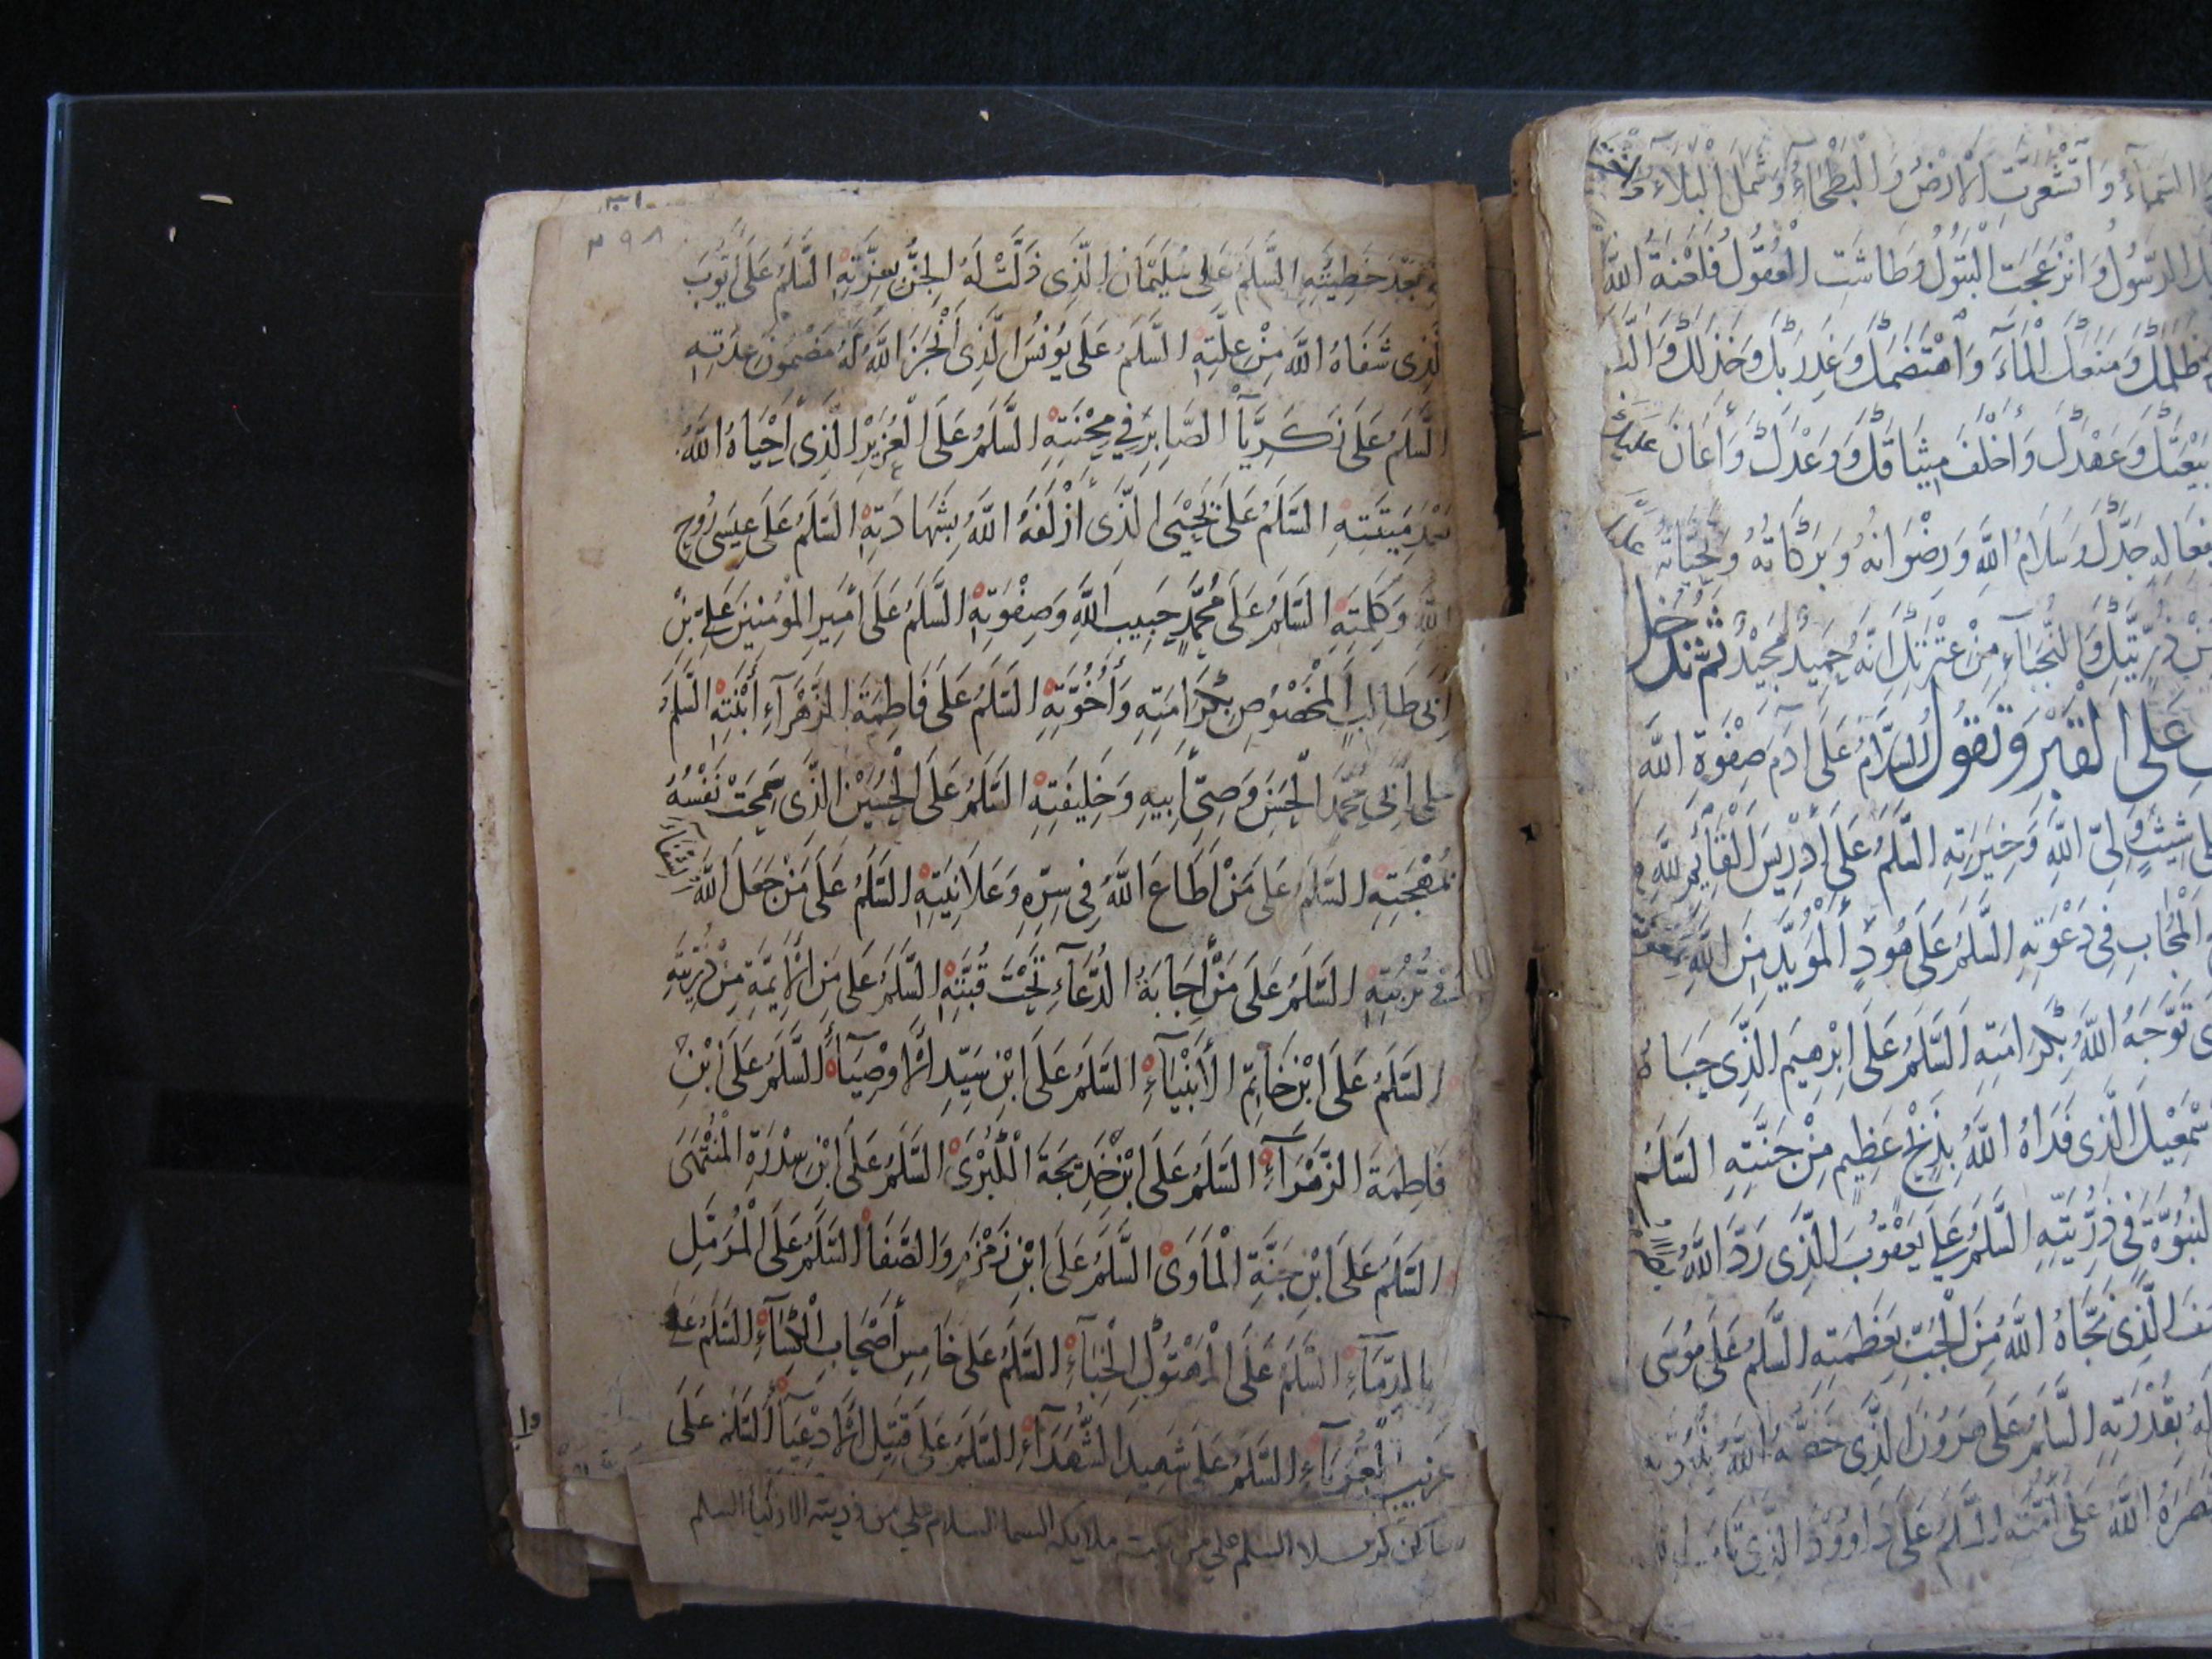 السماء واقشعرت الارض والبطحاء وشمل البلاء
الرسول وانزعجت البتول وطاشت العقول فلعنة الله
ظلمك ومنعك الماء واهتضمك وغدر بك وخذلك والب
بيعتك وعهدك واخلف ميثاقك ووعدك واعان عليك
جدك وسلام الله ورضوانه وبركاته وتحياته عليك
ذريتك والنجباء من عترتك انه حميد مجيد ثم تدخل
على القبر وتقول السلام على ادم صفوة الله
شيث ولى الله وخيرته السلم على ادريس القائم لله
المجاب فى دعوته السلم على هود المؤيد من الله بمعونته
توجه الله بكرامته السلم على ابرهيم الذى حباه
اسمعيل الذى فداه الله بذبح عظيم من جنته السلم
النبوة فى ذريته السلم على يعقوب الذى رد الله
الذى نجاه الله من الجب بعظمته السلم على موسى
له بقدرته السلم على هرون الذى خصه الله
نصره الله على امته السلم على داوود الذى تاب
بعد خطيئته السلم على سليمان الذى ذلت له الجن بعزته السلم على ايوب
الذى شفاه الله من علته السلم على يونس الذى انجز الله له مضمون عدته
السلم على زكريا الصابر في محنته السلم على العزير الذى احياه الله
بعد ميتته السلم على يحيى الذى ازلفه الله بشهادته السلم على عيسى روح
الله وكلمته السلم على محمد حبيب الله وصفوته السلم على امير المؤمنين على بن
ابى طالب المخصوص بكرامته واخوته السلم على فاطمة الزهراء ابنته السلم
على ابى محمد الحسن وصى ابيه وخليفته السلم على الحسين الذى سمحت نفسه
بمهجته السلم على من اطاع الله فى سره وعلانيته السلم على من جعل الله الشفاء
فى تربته السلم على من اجابة الدعاء تحت قبته السلم على من الائمة من ذريته
السلم على ابن خاتم الانبياء السلم على ابن سيد الاوصياء السلم على ابن
فاطمة الزهراء السلم على ابن خديجة الكبرى السلم على ابن سدرة المنتهى
السلم على ابن جنة الماوى السلم على ابن زمزم والصفا السلم على المرمل
بالدماء السلم على المهتوك الخباء السلم على خامس اصحاب الكساء السلم على
غريب الغرباء السلم على شهيد الشهداء السلم على قتيل الادعياء السلم على
ساكن كربلا السلم علي من بكته ملايكه السما السلام علي من ذريته الازكيا السلم